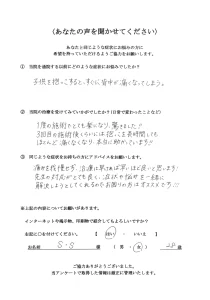 (あなたの声を聞かせてください)
あなたと同じような症状にお悩みの方に
希望を持っていただけるようご協力をお願いします。
① 当院を施術する以前にどのような症状にお悩みでしたか?
子供を抱っこすると、すぐに背中が痛くなってしまう。
② 当院の治療を受けてみていかがでしたか?(日常で変わったことなど)
1度の施術でとても楽になり、驚きました!!
3回目の施術後くらいには抱っこも長時間しても
ほとんど痛くなくなり、本当に助かっています!
③ 同じような症状をお持ちの方にアドバイスをお願いします。
痛みを我慢せず、治療は早ければ早いほど良いと思います!
先生の対応がとても良く、症状や悩みを一緒に
解決しようとしてくれるのでお困りの方はオススメです!!
※上記の内容についてお願いがあります。
インターネットや掲示物、印刷物で紹介してもよろしいですか?
お名に○を付けてください。 【 はい ・ いいえ 】
お名前 S・S 様 (男・女) 28歳
ご協力ありがとうございました。
当アンケートで取得した情報は厳正に管理いたします。